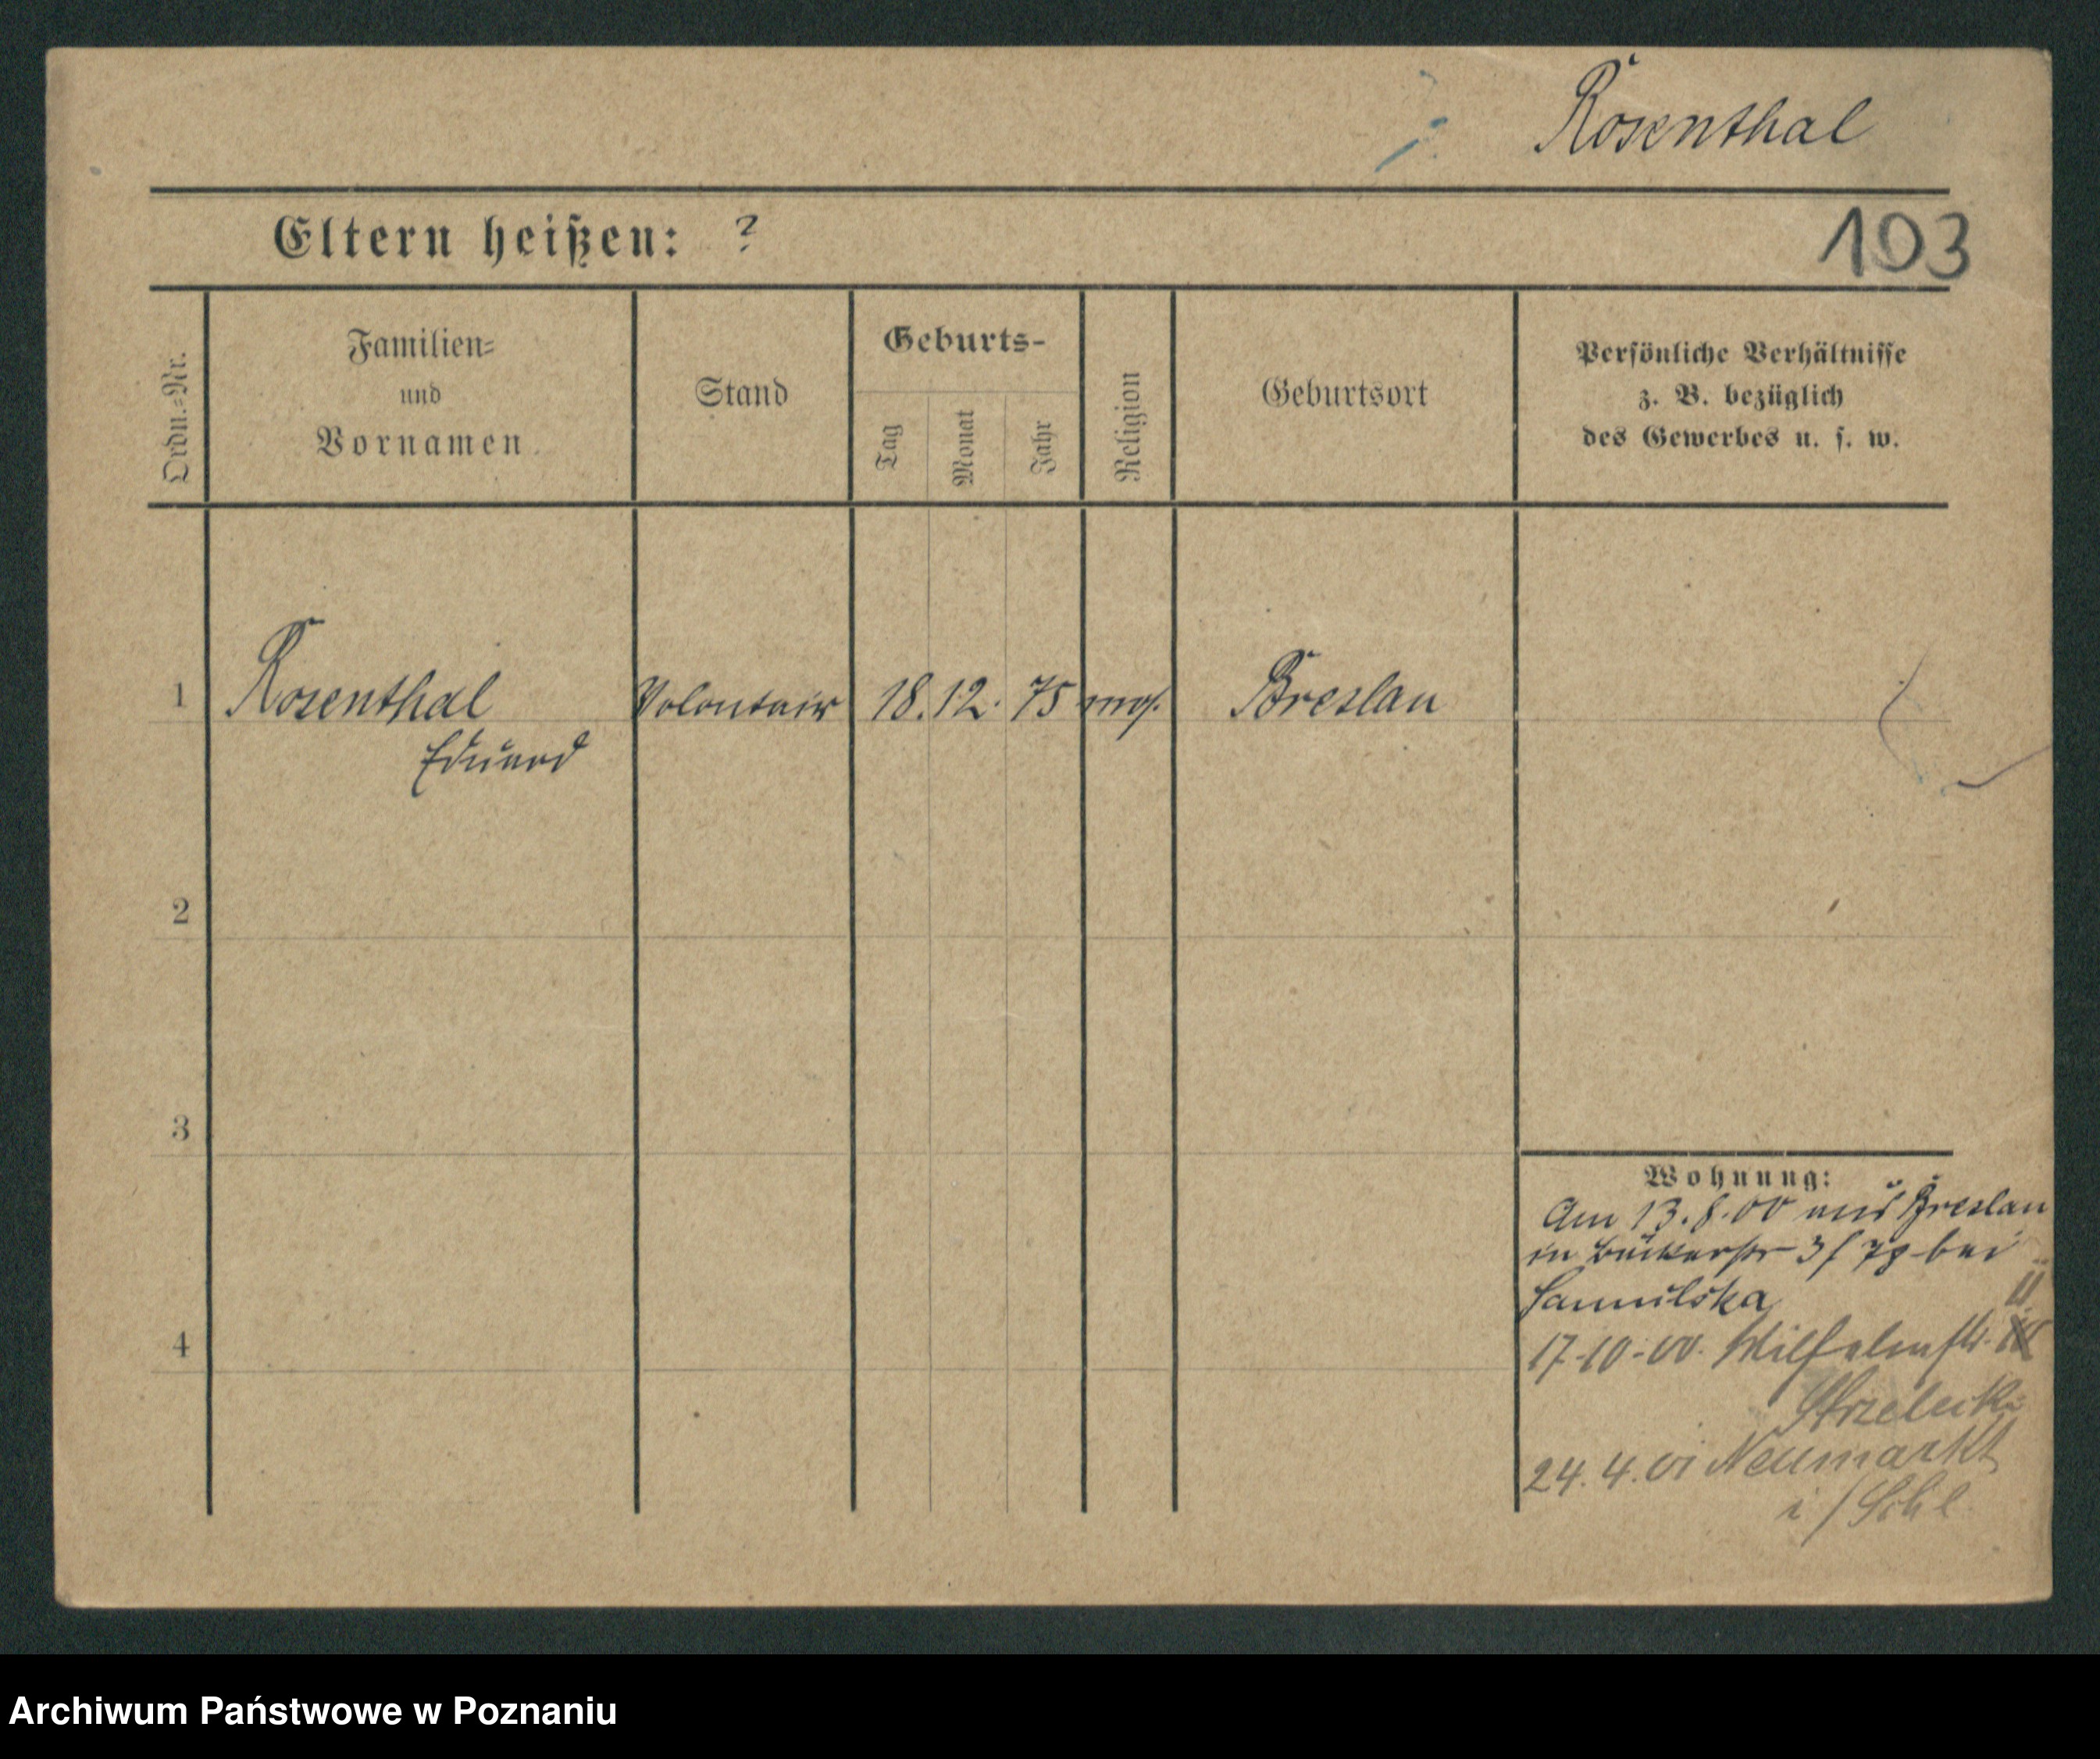 Rosenthal
Eltern heißen: ?
103
Ordn.-Nr.
Familien-
und
Vornamen
Stand
Geburts-
Tag
Monat
Jahr
Religion
Geburtsort
Persönliche Verhältnisse
z. B. bezüglich
des Gewerbes u. s. w.
1 Rosenthal Volontair 18. 12. 75 mos. Breslau
Eduard
2
3
4
Wohnung:
Am 13.8.00 aus Breslau
in Bäckerstr bei
17-10-00. Wilhelmstr. 11
Strzelecki
24. 4. 01 Neumarkt
i/Schl
Archiwum Państwowe w Poznaniu